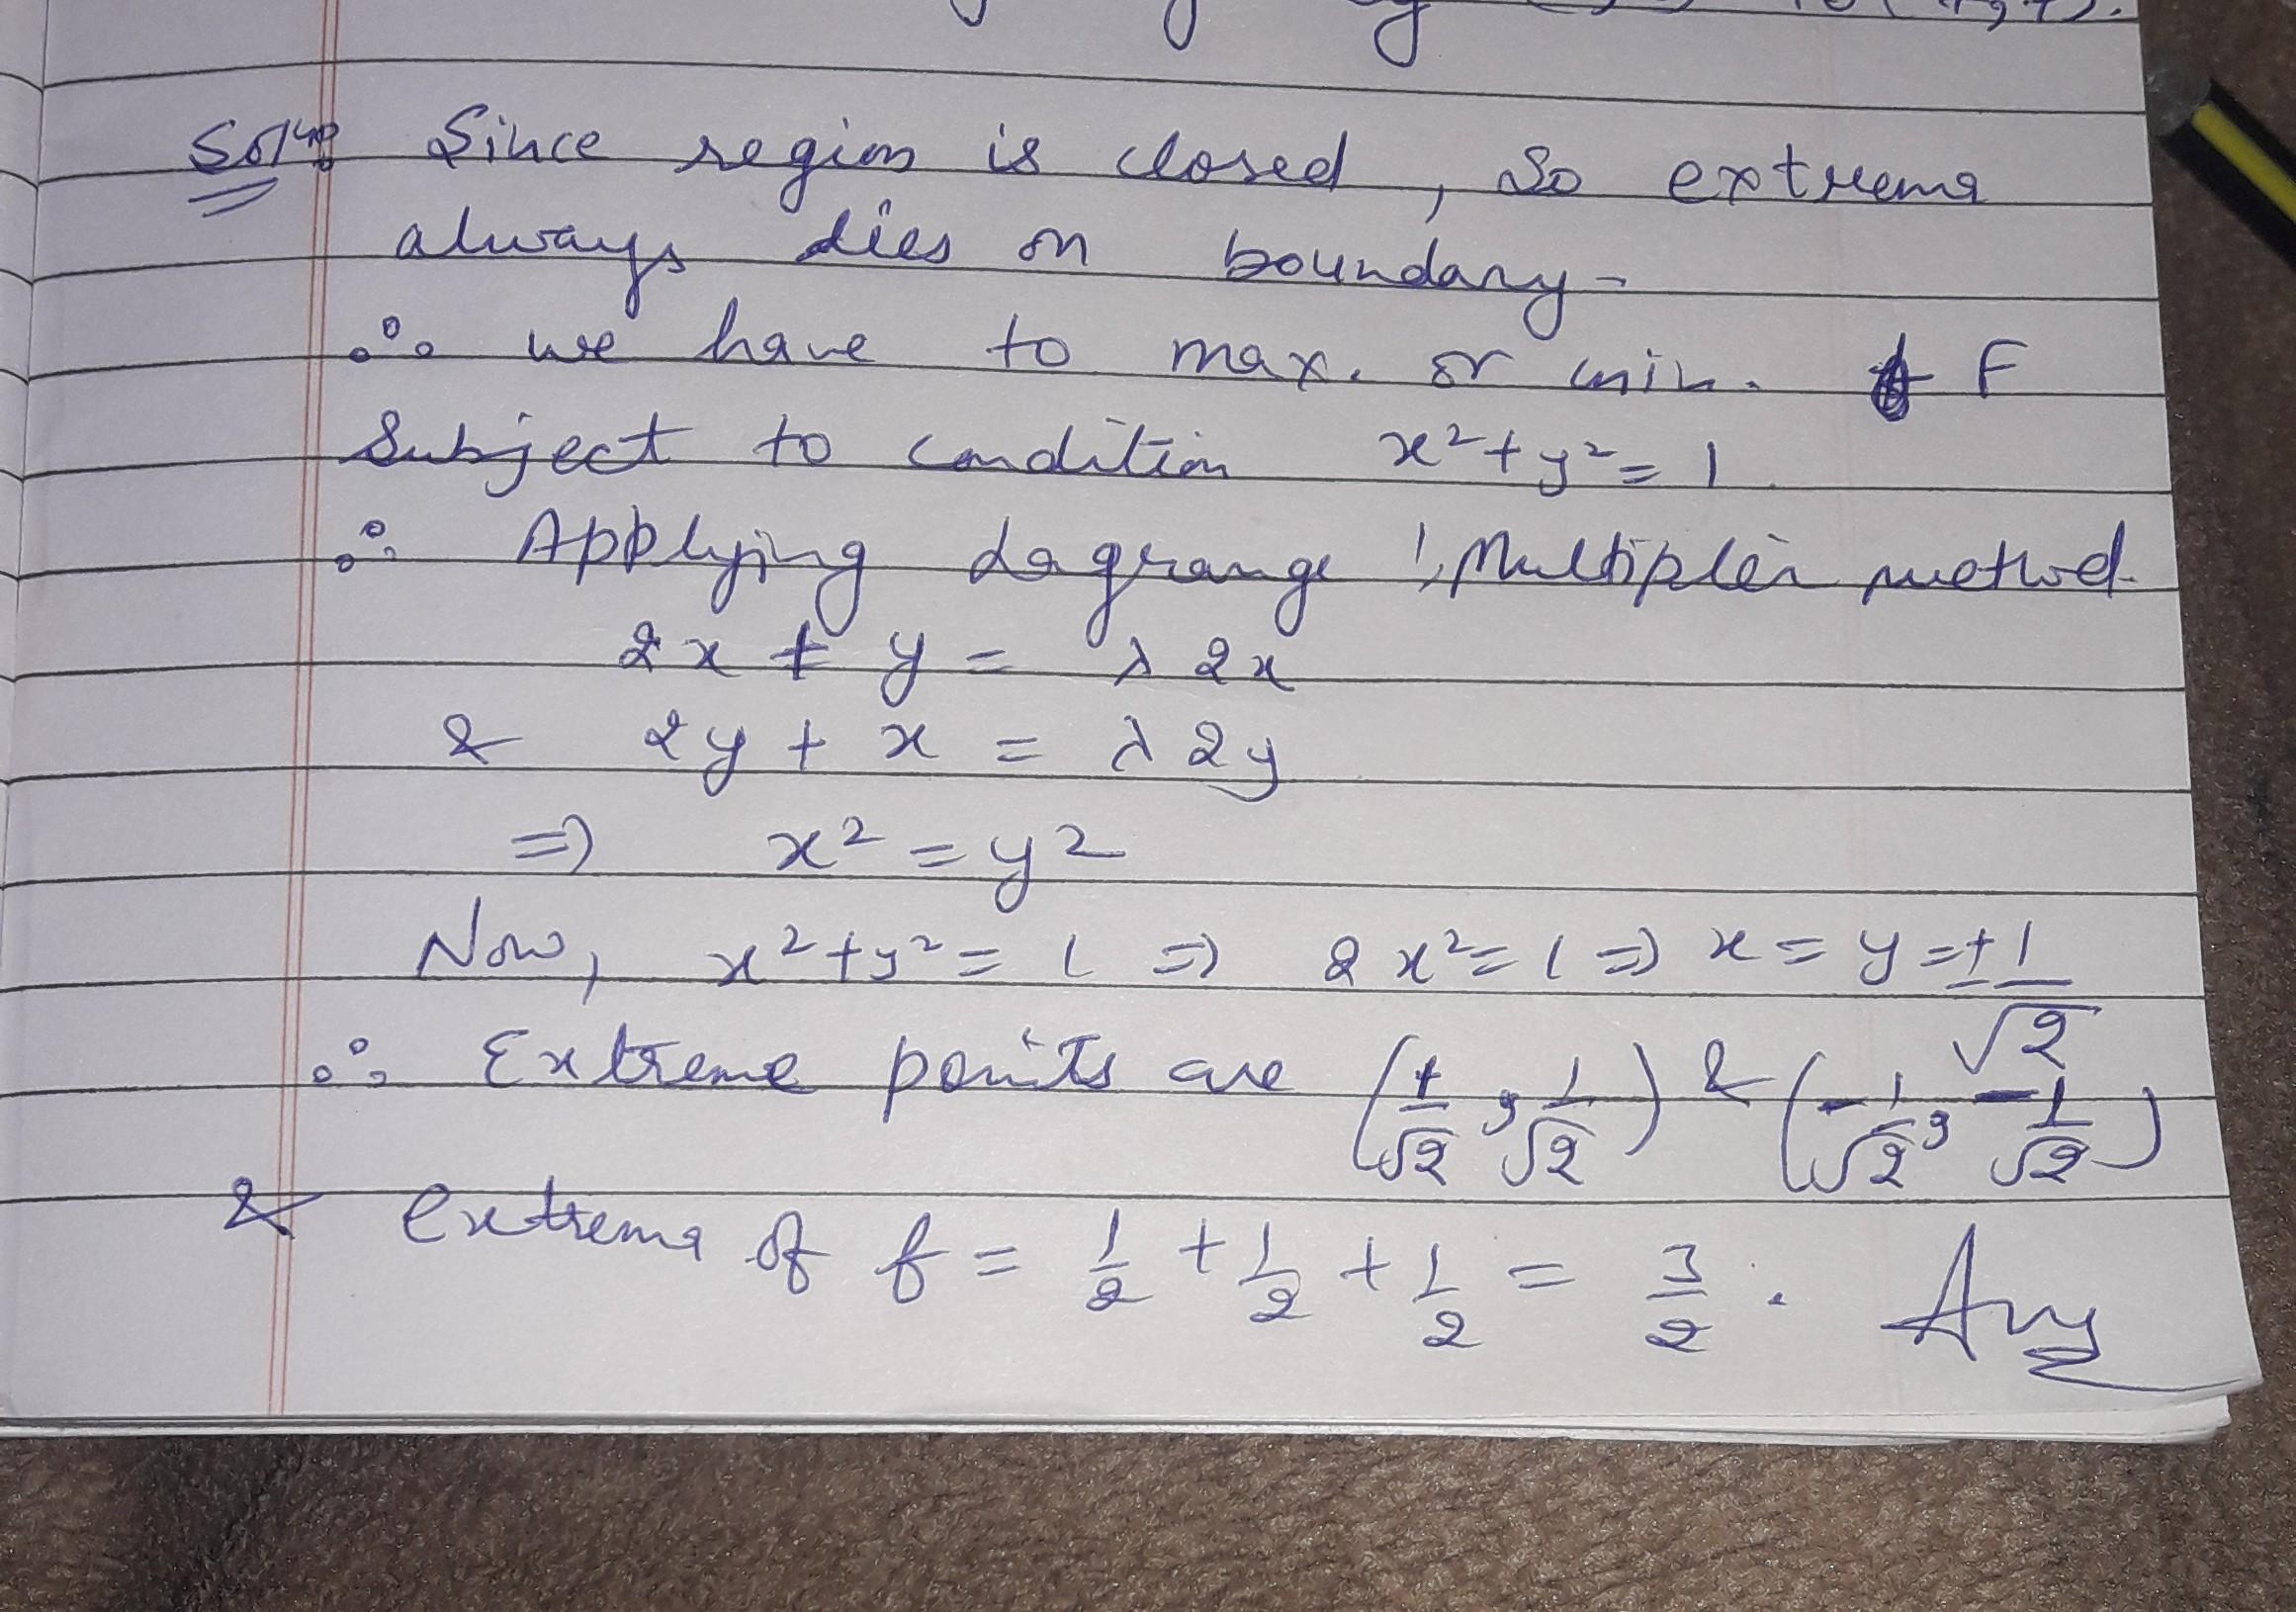 Solⁿ: Since region is closed, So extrema
always lies on boundary-
∴ we have to max. or min. F
Subject to condition x²+y²=1
∴ Applying Lagrange's Multiplier method.
2x + y = λ2x
& 2y + x = λ2y
=) x² = y²
Now, x²+y²=1 =) 2x²=1 =) x=y=±1/√2
∴ Extreme points are (1/√2, 1/√2) & (-1/√2, -1/√2)
& extrema of f = 1/2 + 1/2 + 1/2 = 3/2. Ans